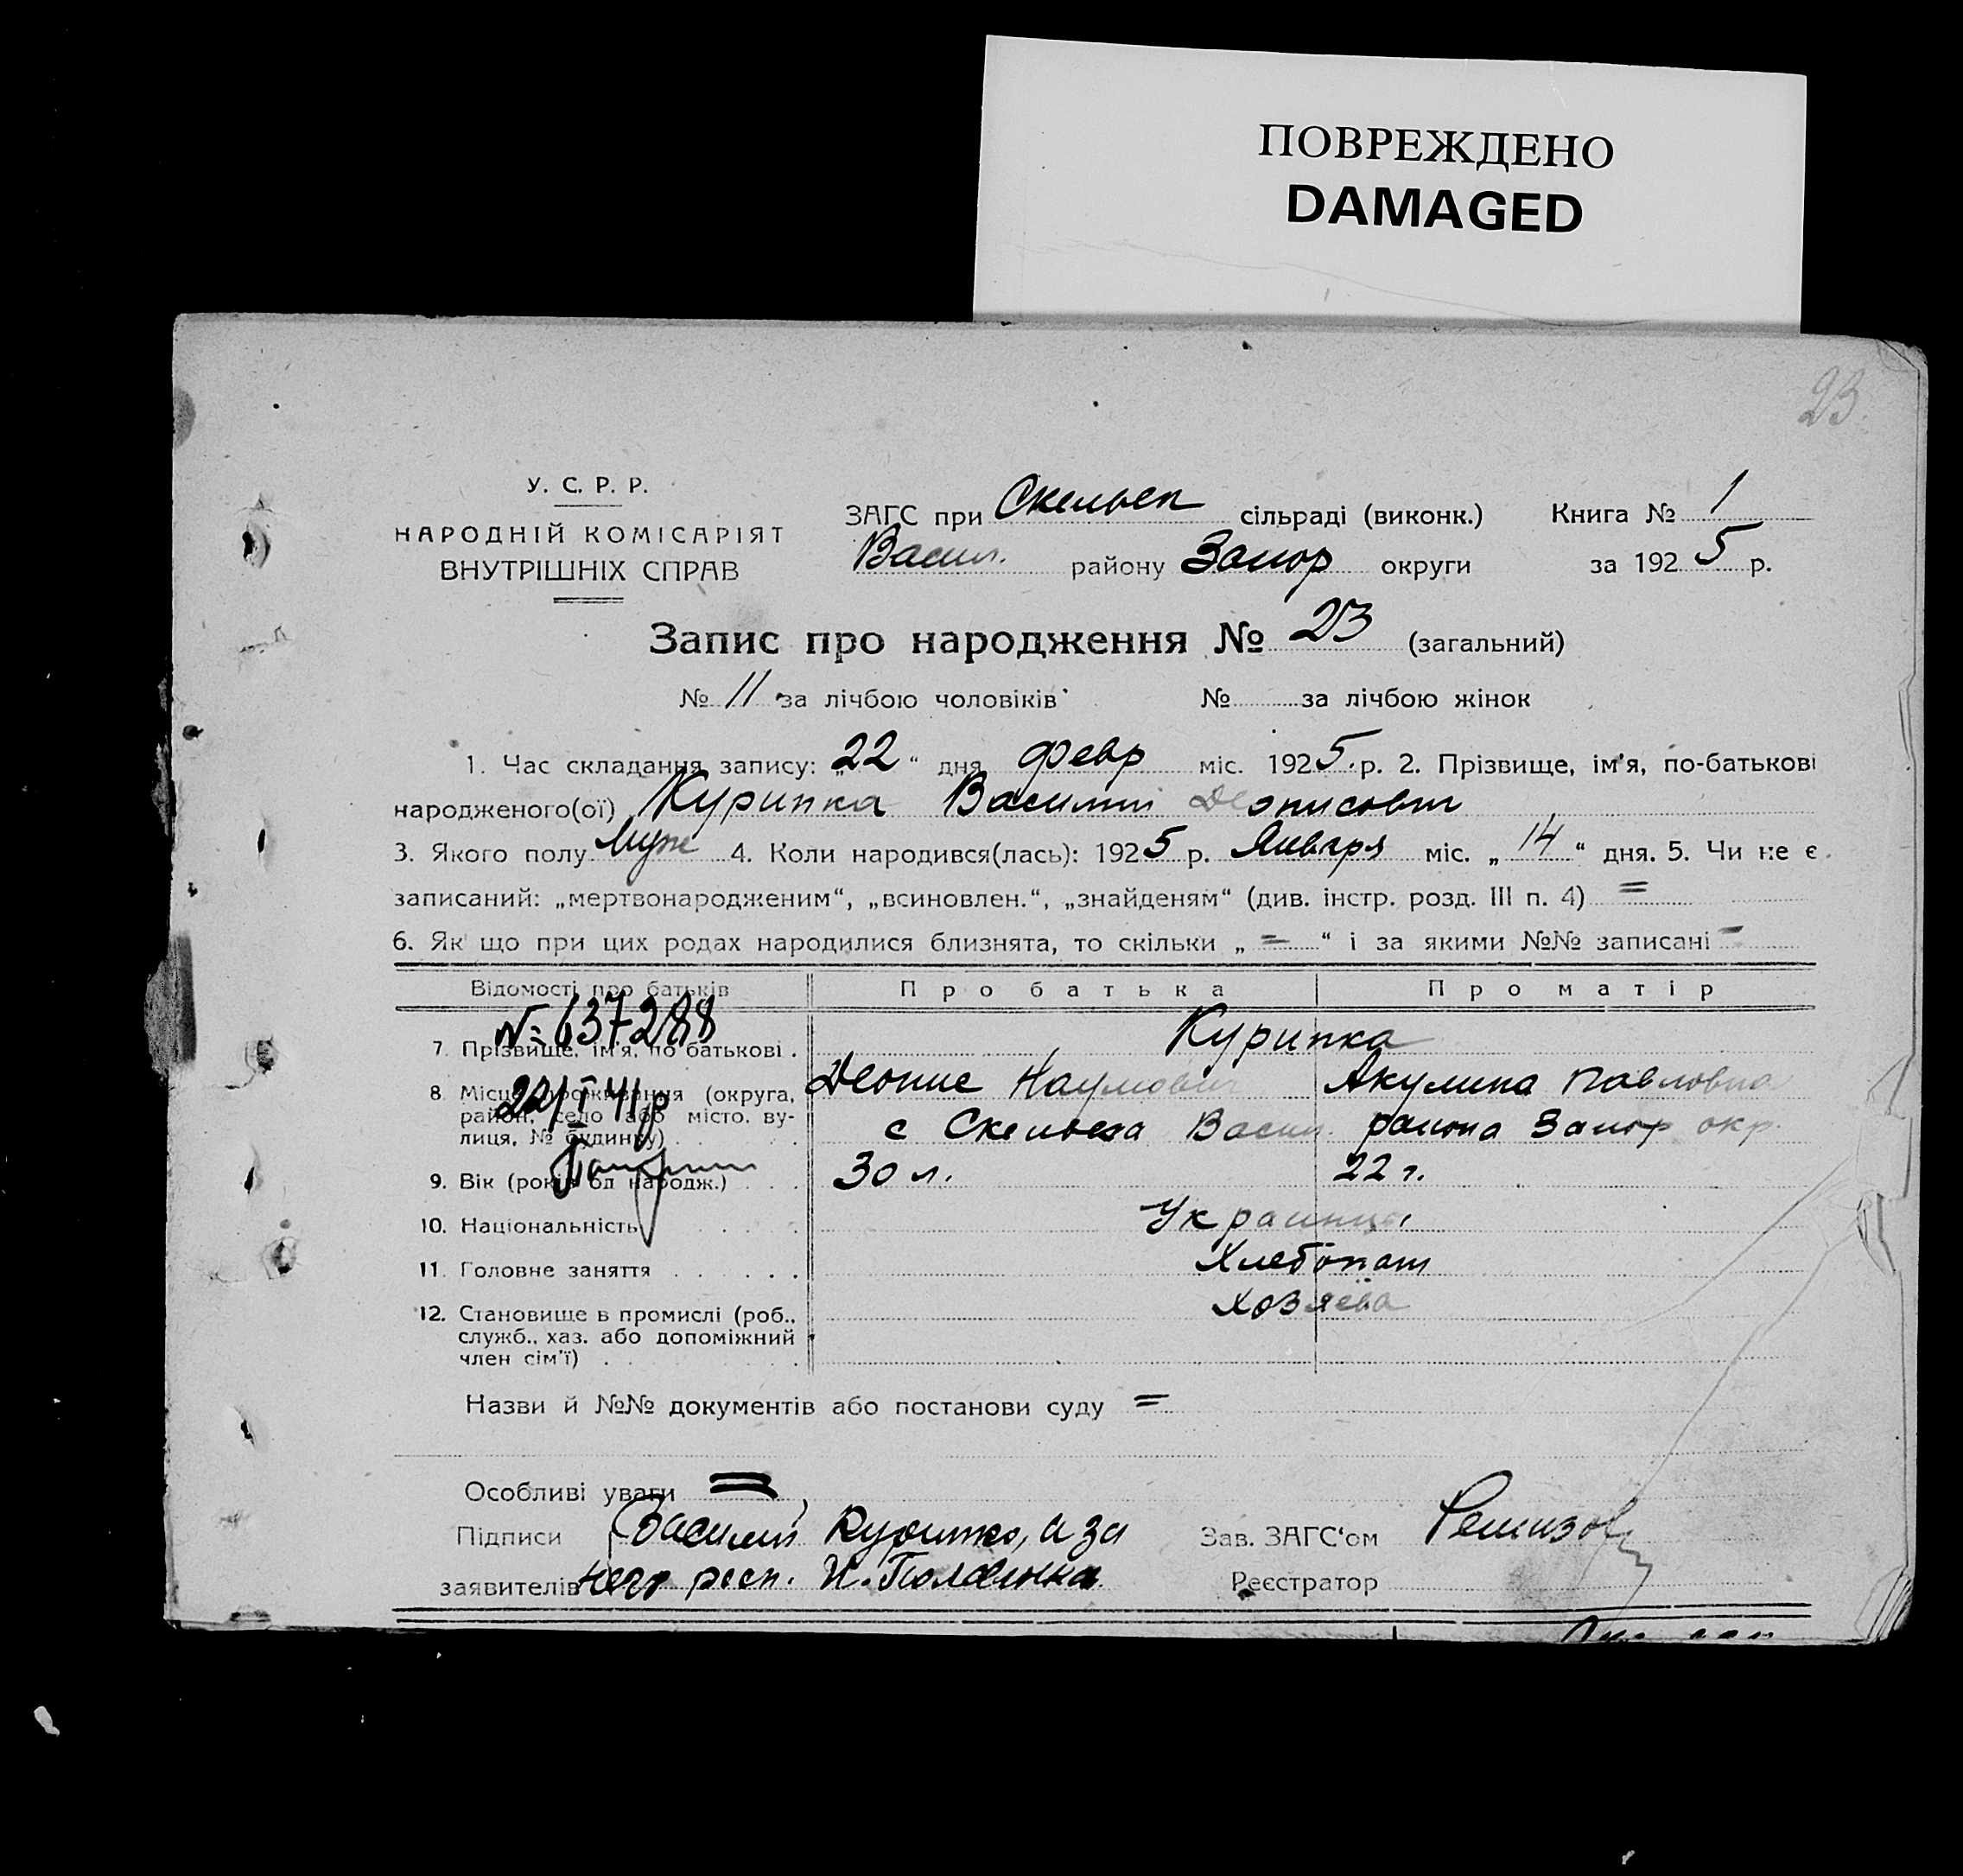 ПОВРЕЖДЕНО
DAMAGED
23
У. С. Р. Р.
НАРОДНІЙ КОМІСАРІЯТ
ВНУТРІШНІХ СПРАВ
ЗАГС при Скельск сільраді (виконк.) Книга № 1
Васил. району Запор округи за 1925 р.
Запис про народження № 23 (загальний)
№ 11 за лічбою чоловіків № за лічбою жінок
1. Час складання запису: „22“ дня февр міс. 1925 р. 2. Прізвище, ім'я, по-батькові
народженого(ої) Курипка Василий Деонисович
3. Якого полу Муж 4. Коли народився(лась): 1925 р. Января міс. „14“ дня. 5. Чи не є
записаний: „мертвонародженим“, „всиновлен.“, „знайденям“ (див. інстр. розд. III п. 4) =
6. Як що при цих родах народилися близнята, то скільки „=“ і за якими №№ записані -
Відомості про батьків Про батька Про матір
№ 637288
7. Прізвище, ім'я, по батькові. Курипка
Деонис Наумович Акулина Павловна
8. Місце проживання (округа,
район, село або місто, ву-
лиця, № будинку)
22/I 41р
с Скельки Васил. района Запор окр.
9. Вік (років од народж.) 30 л. 22 г.
10. Національність Украинцы
11. Головне заняття Хлебопаш
12. Становище в промислі (роб.,
служб., хаз. або допоміжний
член сім'ї)
Хозяева
Назви й №№ документів або постанови суду =
Особливі уваги =
Підписи Василий Курипко, а за Зав. ЗАГС'ом Ремизов
заявителів него расп. И. Половинка Реєстратор